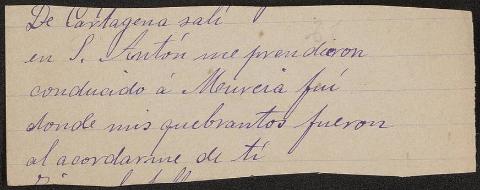 De Cartagena salí
en S. Antón me prendieron
conducido á Murcia fuí
donde mis quebrantos fueron
al acordarme de tí